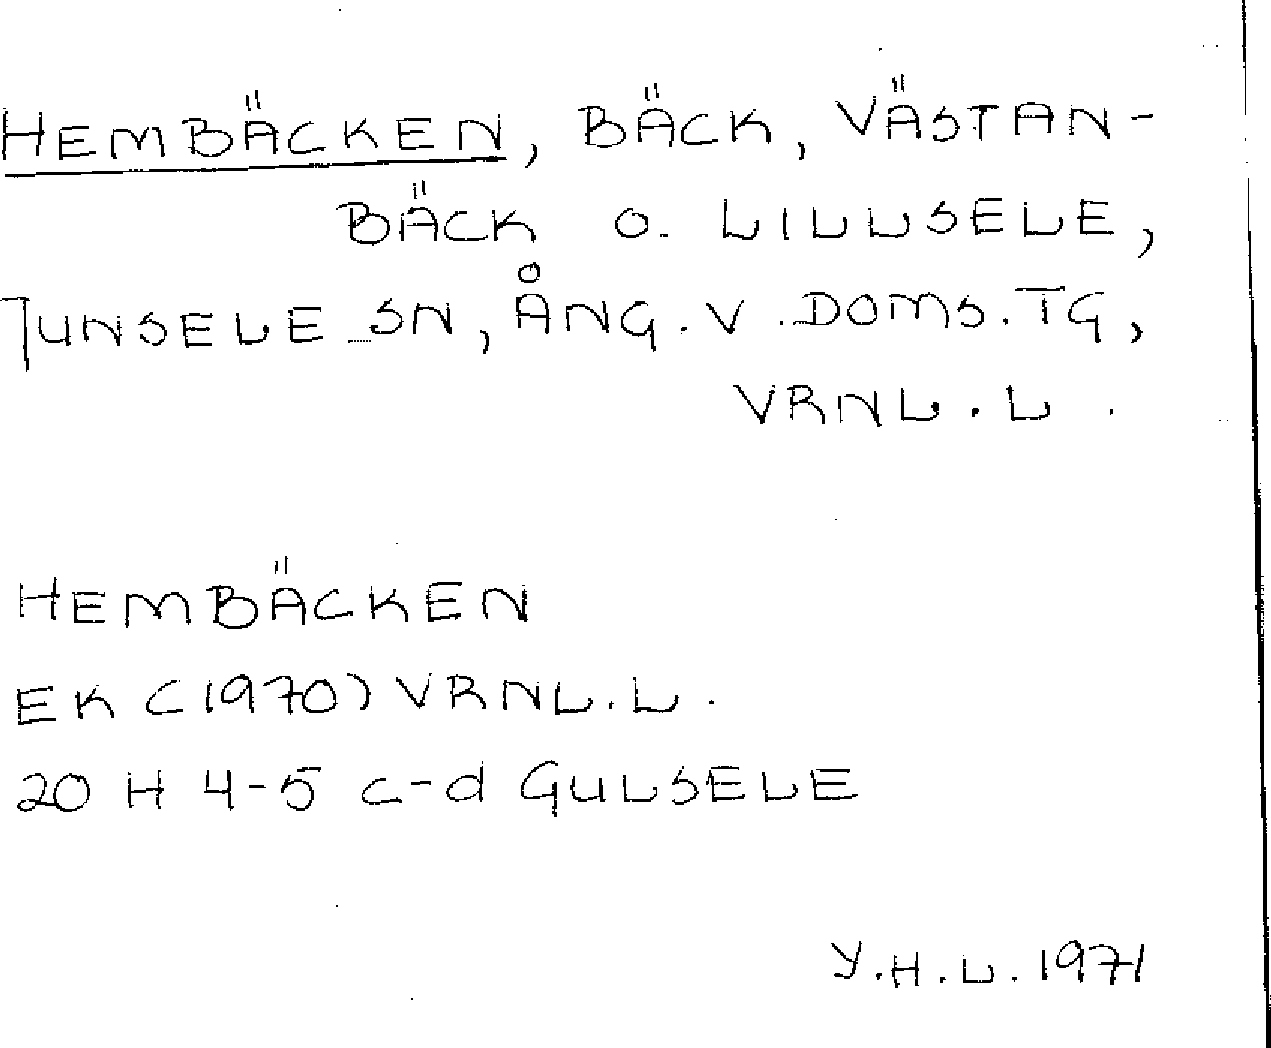 HEMBÄCKEN, BÄCK, VÄSTAN-
BÄCK O. LILLSELE,
JUNSELE SN, ÅNG. V. DOMS. TG,
VRNL. L.
HEMBÄCKEN
EK (1970) VRNL. L.
20 H 4-5 c-d GULSELE
Y.H.L. 1971